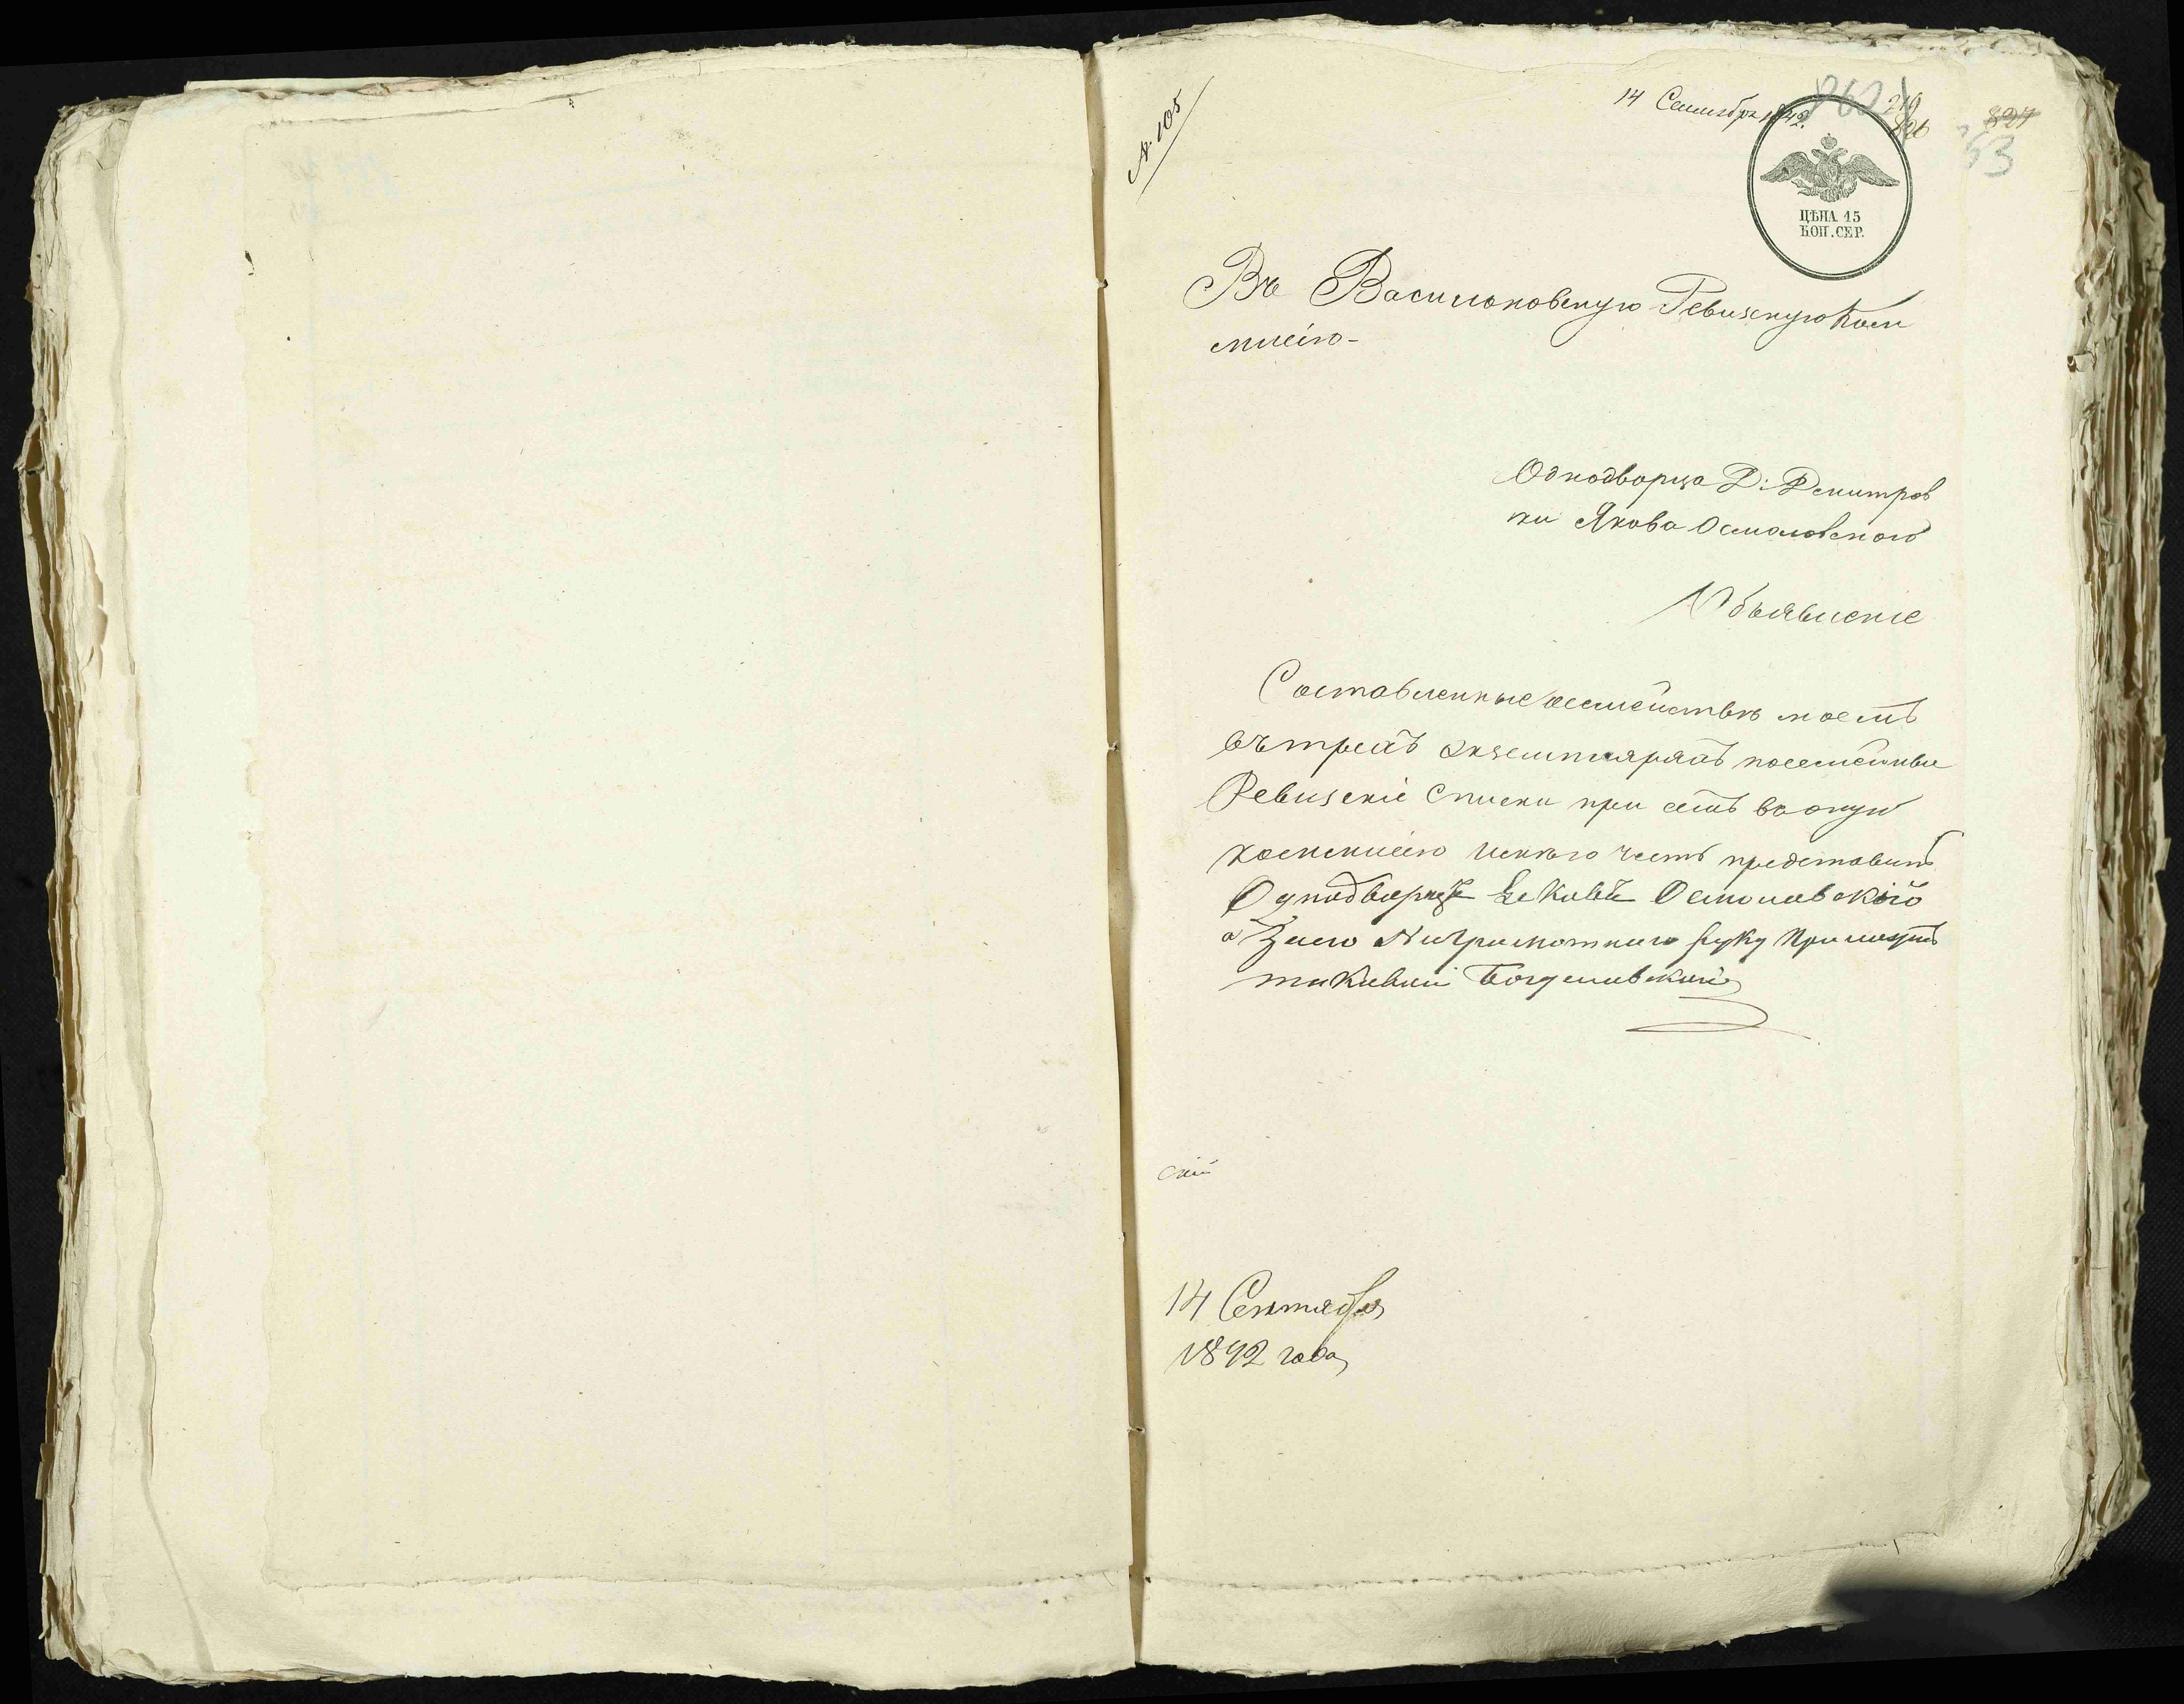 № 105
14 Сентября 1842.
219
826
827
53
ЦѢНА 15
КОП. СЕР.
Въ Васильковскую Ревизскую Ком
мисію-
Однодворца Д: Дмитров
ки Якова Осмоловского
Объявленіе
Составленные о семействѣ моемъ
въ трехъ экземплярахъ посемейные
Ревизскіе Списки при семъ въ оную
коммисію имѣю честь представить
Однодворецъ Осмоловскій
а за его Неграмотного руку Приложилъ
Богдановский
скій
14 Сентября
1842 года